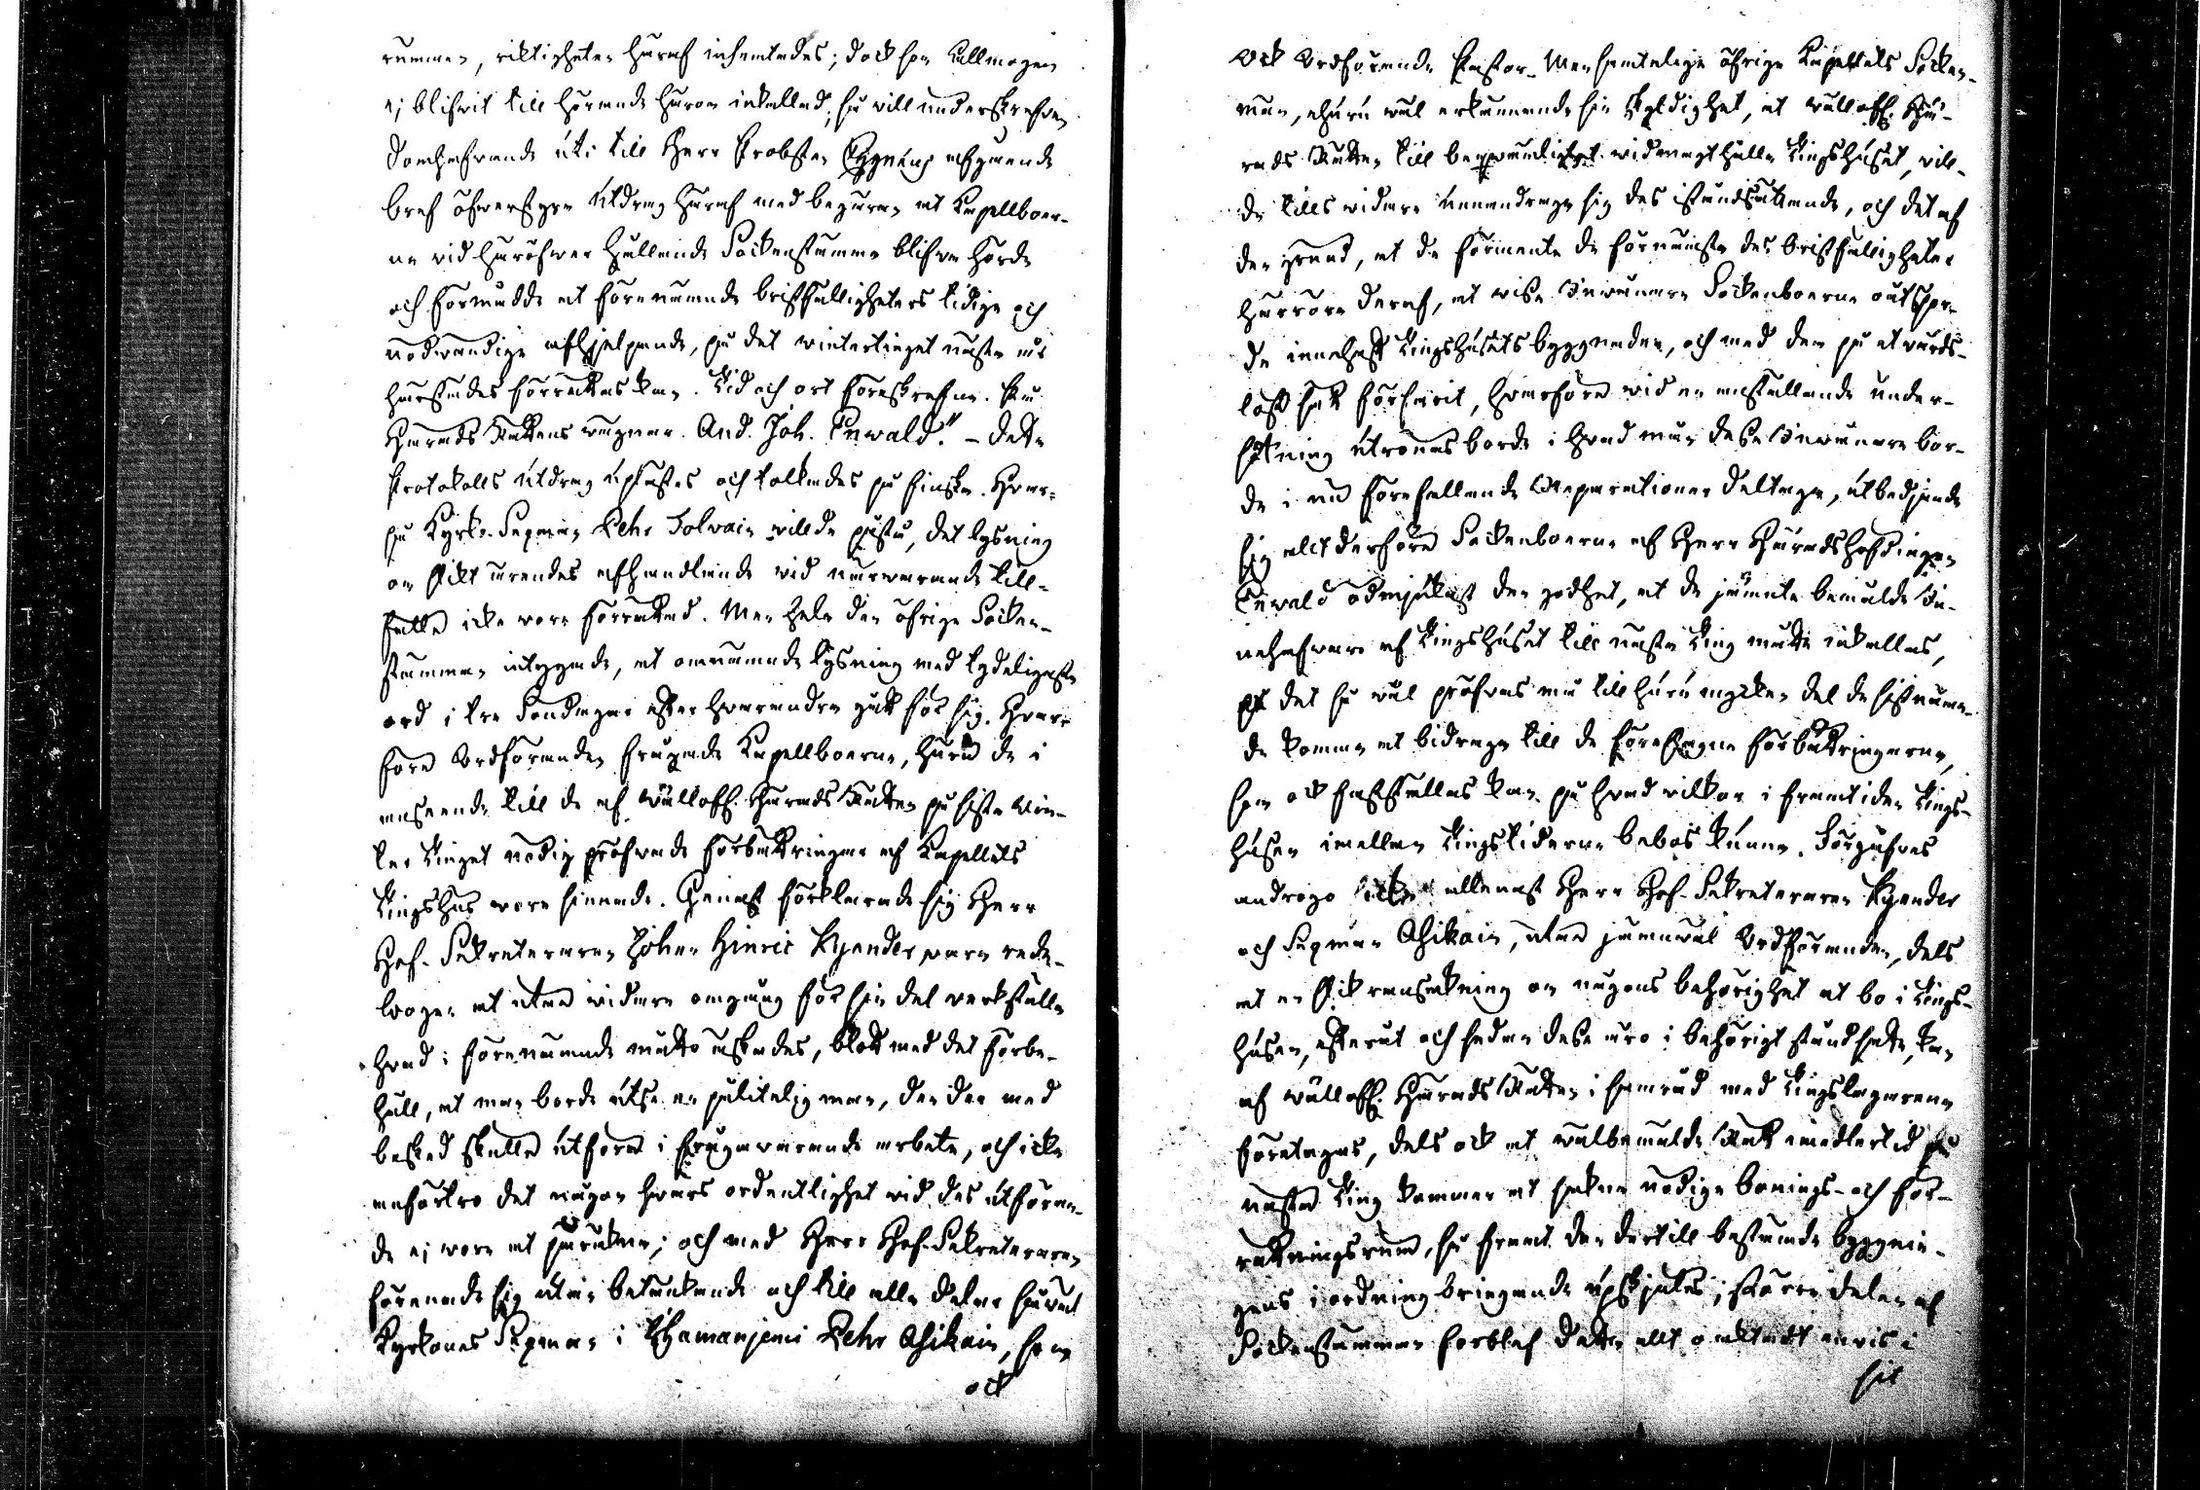 rummen, riktigheten häraf inhemtades; dock som Allmogen
ej blifvit till hörande häröm inkallad, så vill underskrefven
domhafvande uti till Herr Probsten Cygnæus afgående
bref öfwersända Utdrag häraf med begäran at Kapellboer-
ne vid häröfwer hållande Sockenstämma blifva hörde
och förmådde at förenämnde bristfälligheters tidiga och
nödvändiga afhjelpande, på det wintertinget nästa år
härstädes förrättas kan. Tid och ort föreskrefne. På
Härads Rättens wägnar. And. Joh. Enwald." – Detta
Protokolls Utdrag uplästes och tolkades på finska. Hvar-
på Kyrko-Sexman Pehr Tolvain ville påstå, det lysning
om slikt ärendes afhandlande vid närvarande till-
fälle icke vore förrättad. Men hela den öfriga Socken-
stämman intygade, at omnämnde lysning med tydeligaste
ord i tre Söndagar efter hvarandra gått för sig. Hvar-
före Ordföranden frågade Kapellboerne, huru de i
anseende till de af Wällofl. Härads Rätten på sista Vin-
ter Tinget nödig pröfvade förbättringar af Kapellets
Tingshus vore sinnade. Genast förklarade sig Herr
Hof-Sekreteraren Johan Hinric Kyander vara rede-
bogen at utan vidare omgång för sin del verkställa
hvad i förenämnde måtto äskades, blott med det förbe-
håll, at man borde utse en pålitelig man, den der med
besked skulle utföra i frågavarande arbete, och icke
anförtro det någon hvars ordentlighet vid des utföran-
de ej vore at påräkna; och med Herr Hof-Sekreteraren
förenade sig utan betänkande och till alla delar härvid
Kyrkones Sexman i Hamanjemi Pehr Asikain, som
ock
Ock Ordförande Pastor. Men samtelige öfrige Kapellets Socken-
män, ehuru väl erkännande sin skyldighet, at Wällofl. Hä-
rads Rätten till beqvämlighet vidmagthålla Tingshuset, vil-
de tills vidare undandraga sig des iståndsättande, och det af
den grund, at de förmente de förnämsta des bristfälligheter
härröra deraf, at visse Innevånare Sockenboerne outspor-
de innehaft Tingshusets byggnader, och med dem på et vårds-
löst sätt förfarit, hvarföre vid en anställande under-
sökning utrönas borde i hvad mån desse Innevånare bör-
de i nu förefallande Reparationer deltaga, utbedjande
sig allt derföre Sockenboerne af Herr Häradshöfdingen
Enwald ödmjukast den godhet, at de jämnte bemälde In-
nehafvare af Tingshuset till nästa Ting måtte inkallas,
på det så väl pröfvas må till huru mycken del de sistnäm-
de komma at bidraga till de föreslagne förbättringarne,
som ock fastställas kan på hvad vilkor i framtiden Tings-
husen imellan Tingstiderne bebos kunna. Förgäfves
androgo icke allenast Herr Hof-Sekreteraren Kyander
och Sexman Asikain, utan jämväl Ordföranden, dels
at en slik ransakning om någons behörighet at bo i Tings-
husen, efteråt och sedan desse äro i behörigt stånd satte, kan
af Wällofl. Härads Rätten i samråd med Tingslagarena
företagas, dels ock at välbemälde Rätt imedlertid på
nästa Ting kommer at sakna nödige bonings- och för-
rättningsrum, så framt den dertill bestämde byggnin-
gens i ordning bringande upskjutes; större delen af
Sockenstämman förblef detta allt oaktadt envis i
sit